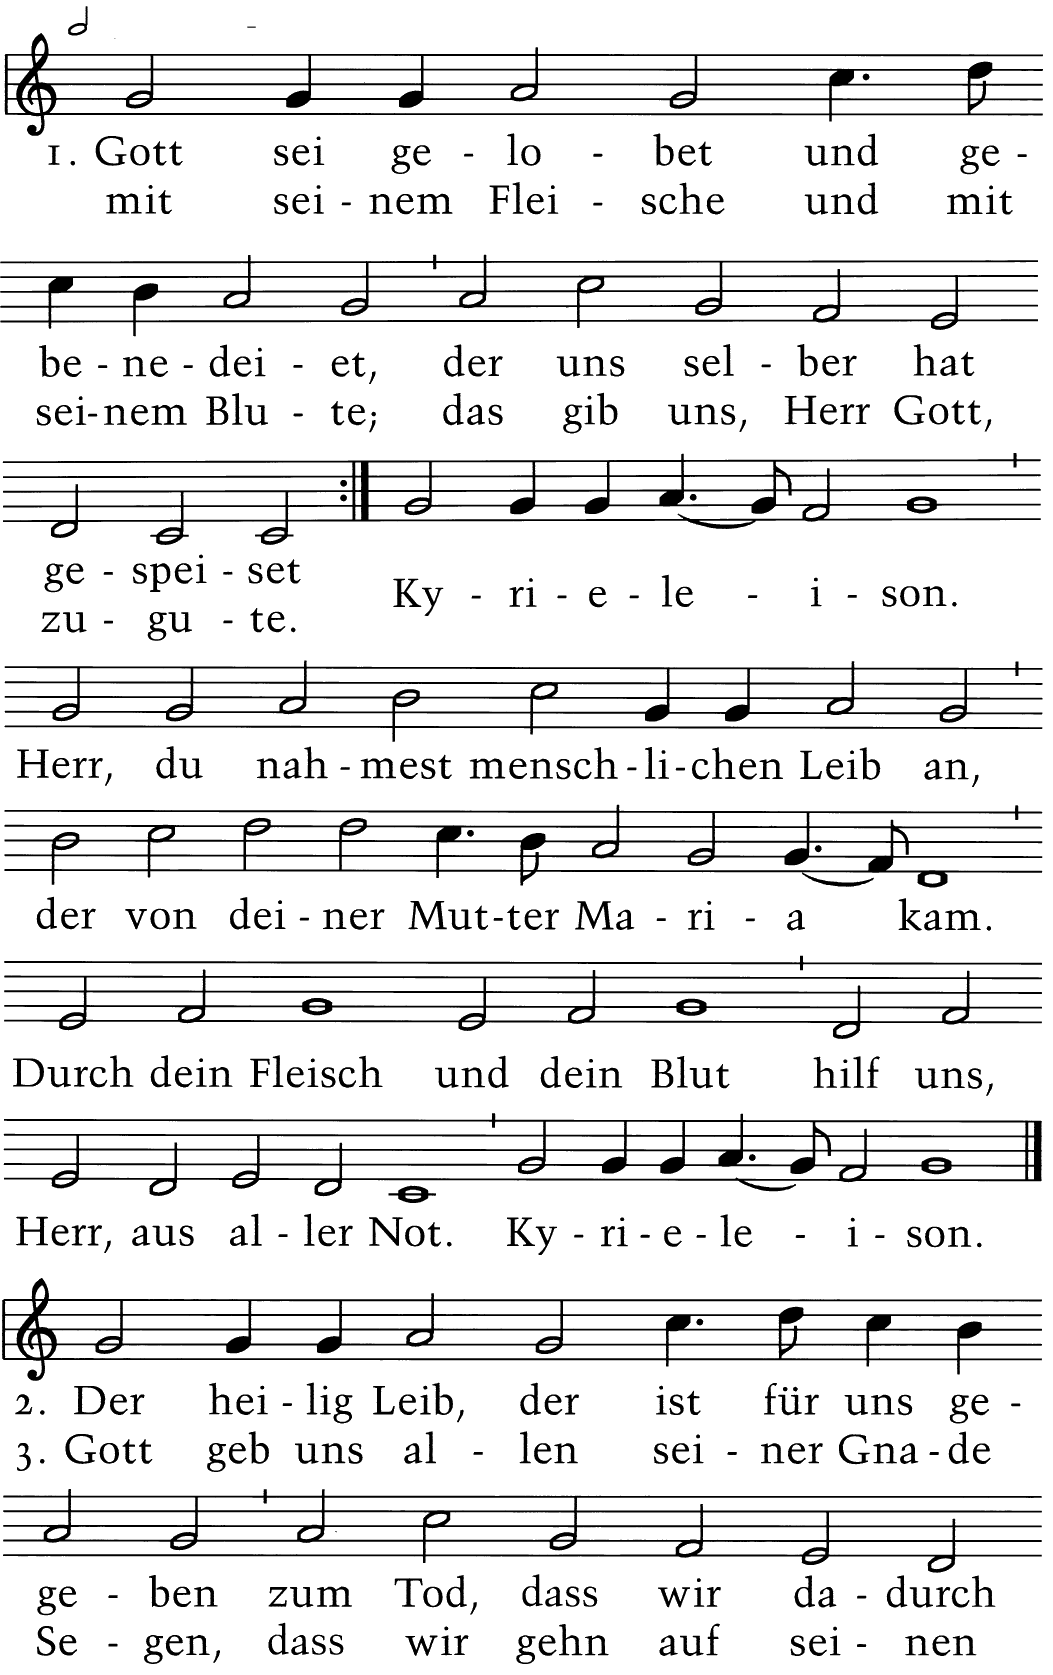 1. Gott sei ge - lo - bet und ge -
mit sei - nem Flei - sche und mit
be - ne - dei - et, der uns sel - ber hat
sei - nem Blu - te; das gib uns, Herr Gott,
ge - spei - set
zu - gu - te.
Ky - ri - e - le - i - son.
Herr, du nah - mest mensch - li - chen Leib an,
der von dei - ner Mut - ter Ma - ri - a kam.
Durch dein Fleisch und dein Blut hilf uns,
Herr, aus al - ler Not. Ky - ri - e - le - i - son.
2. Der hei - lig Leib, der ist für uns ge -
3. Gott geb uns al - len sei - ner Gna - de
ge - ben zum Tod, dass wir da - durch
Se - gen, dass wir gehn auf sei - nen